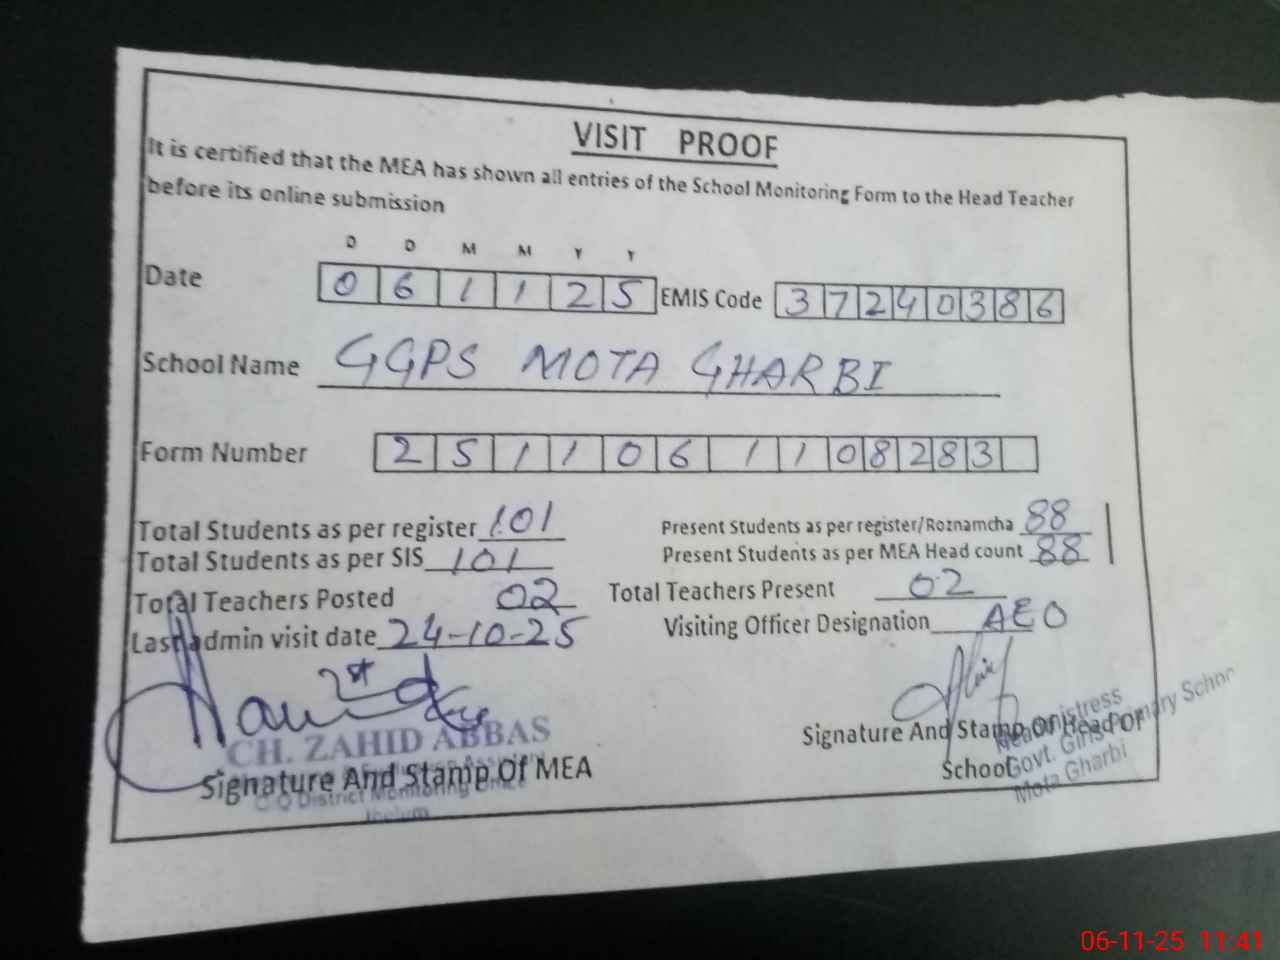 VISIT PROOF
It is certified that the MEA has shown all entries of the School Monitoring Form to the Head Teacher
before its online submission
D D M M Y Y
Date 0 6 1 1 2 5 EMIS Code 3 7 2 4 0 3 8 6
School Name GGPS MOTA GHARBI
Form Number 2 5 1 1 0 6 1 1 0 8 2 8 3
Total Students as per register 101 Present Students as per register/Roznamcha 88
Total Students as per SIS 101 Present Students as per MEA Head count 88
Total Teachers Posted 02 Total Teachers Present 02
Last admin visit date 24-10-25 Visiting Officer Designation AEO
1st
CH. ZAHID ABBAS
Signature And Stamp Of MEA
O District Monitoring Office
Jhelum
Signature And Stamp Of Head Of
School
Headmistress
Govt. Girls Primary School
Mota Gharbi
06-11-25 11:41